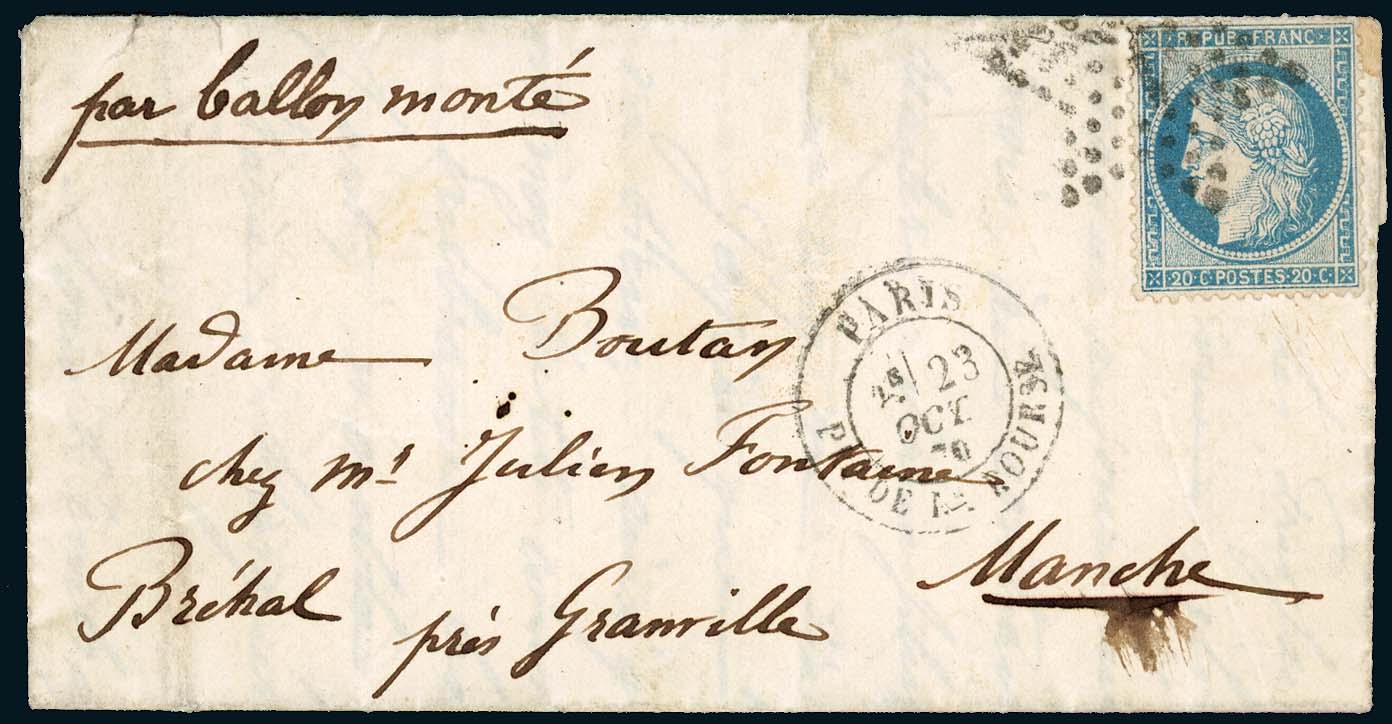 par ballon monté
REPUB FRANC
20·C·POSTES·20·C
PARIS
23
OCT.
70
PL. DE LA BOURSE
Madame Boutan
chez Mr Julien Fontaine
Bréhal près Granville
Manche